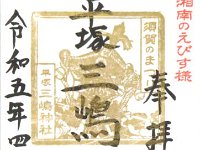 湘南のえびす様
奉拝
須賀のまち
平塚三嶋
平塚三嶋神社
令和五年四